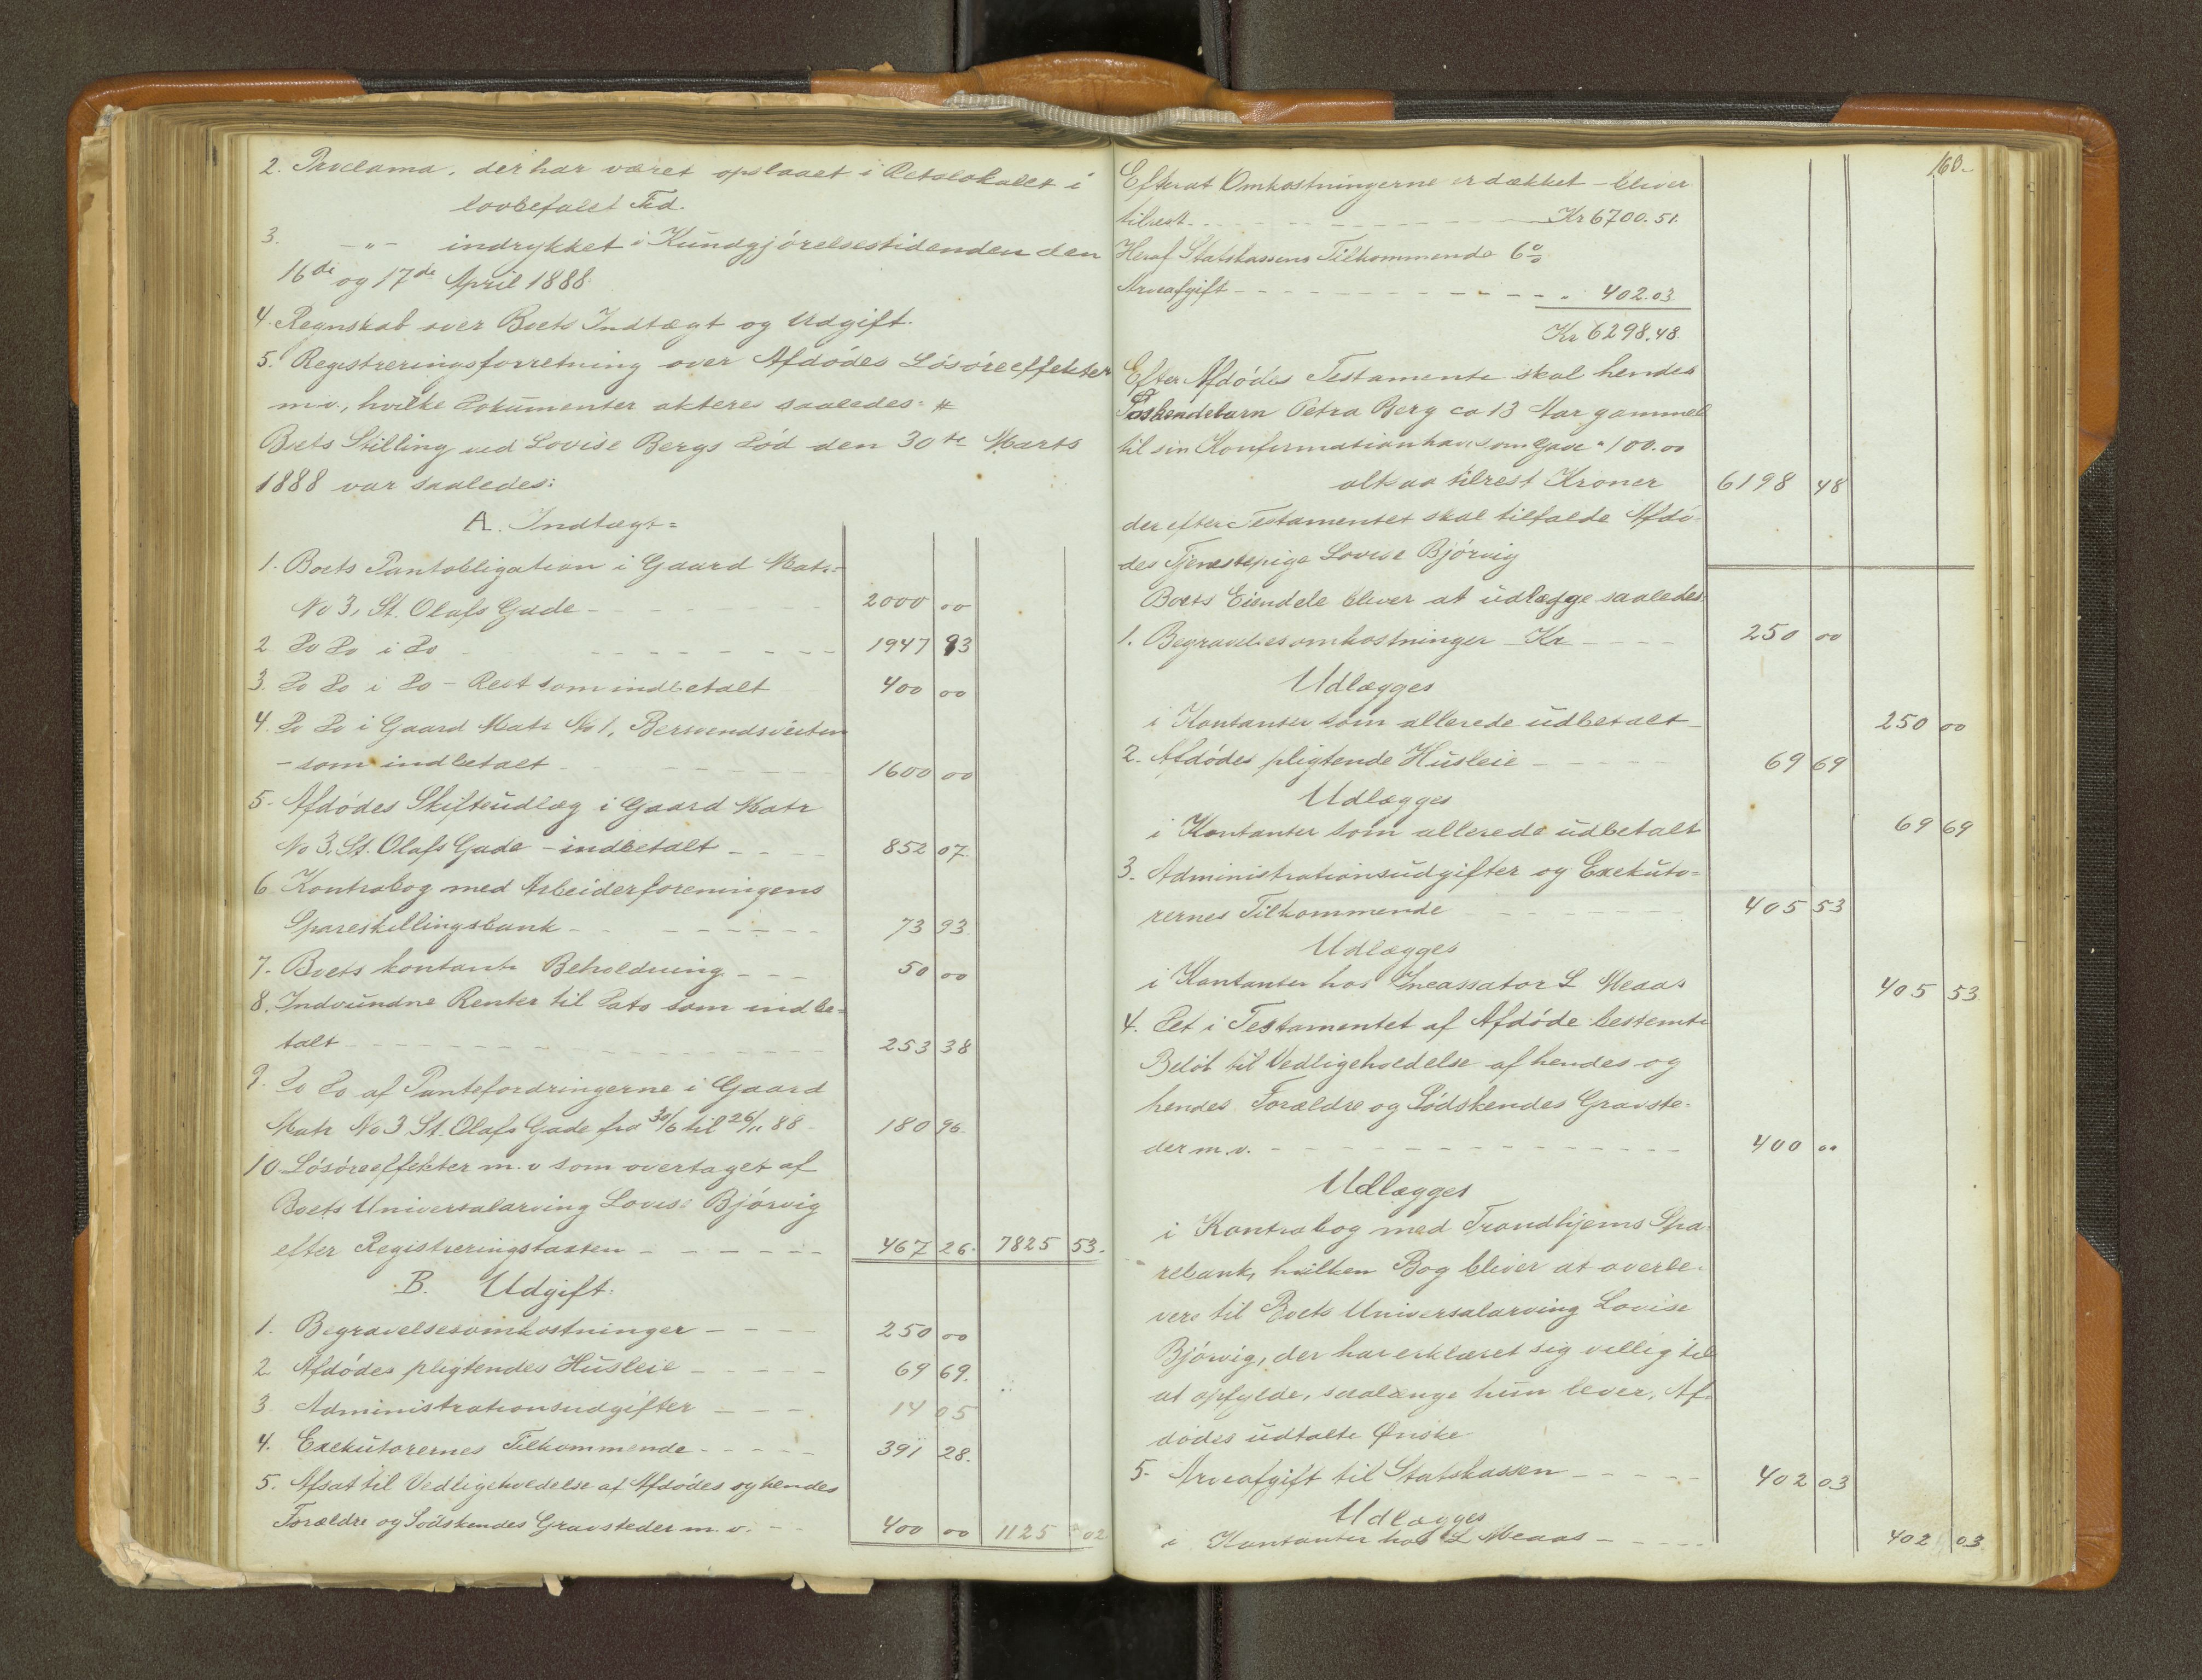 2. Proclama, der har været opslaaet i Retslokalet i
lovbefalet Tid.
3. -"- indrykket i Kundgjörelsestidenden den
16de og 17de April 1888.
4. Regnskab over Boets Indtægt og Udgift.
5. Registreringsforretning over Afdödes Lösöreeffekter
m.v., hvilke Dokumenter akteres saaledes: #
Boets Stilling ved Lovise Bergs Död den 30te Marts
1888 var saaledes:
A. Indtægt=
1. Boets Pantobligation i Gaard Matr=
No 3, St. Olafs Gade - 2000 00
2 Do Do i Do - 1947 93
3. Do Do i Do - Rest som indbetalt 400 00
4. Do Do i Gaard Matr No 1, Bersvendsveiten
- som indbetalt 1600 00
5. Afdödes Skifteudlæg i Gaard Matr
No 3, St. Olafs Gade - indbetalt - 852 07.
6. Kontrabog med Arbeiderforeningens
Spareskillingsbank - 73 93.
7. Boets kontante Beholdning - 50 00
8. Indvundne Renter til Dato som indbe=
talt - 253 38
9. Do Do af Pantefordringerne i Gaard
Matr No 3 St. Olafs Gade fra 30/6 til 26/11 88 - 180 96
10. Lösöreeffekter m.v som overtaget af
Boets Universalarving Lovise Bjørvig
efter Registreringstaxten - 467 26. 7825 53.
B. Udgift.
1. Begravelsesomkostninger - 250 00
2. Afdödes pligtendes Husleie - 69 69.
3 Administrationsudgifter - 14 05
4. Exekutorernes Tilkommende - 391 28.
5. Afsat til Vedligeholdelse af Afdödes og hendes
Forældre og Södskendes Gravsteder m.v. - 400 00 1125 02
160.
Efterat Omkostningerne er dækket - bliver
tilrest - Kr 6700.51.
Heraf Statskassens Tilkommende 6%
Arveafgift - " 402.03
Kr 6298.48.
Efter Afdödes Testamente skal hendes
Söskendebarn Petra Berg ca 13 Aar gammel
til sin Konfirmation have som Gave " 100.00
altsaa tilrest Kroner 6198 48
der efter Testamentet skal tilfalde Afdö-
des Tjenestepige Lovise Bjørvig
Boets Eiendele bliver at udlægge saaledes:
1. Begravelsesomkostninger Kr - 250 00
Udlægges
i Kontanter som allerede udbetalt - 250 00
2. Afdödes pligtende Husleie - 69 69
Udlægges
i Kontanter som allerede udbetalt 69 69
3. Administrationsudgifter og Exekuto=
rernes Tilkommende - 405 53
Udlægges
i Kontanter hos Incassator L Meaas 405 53
4. Det i Testamentet af Afdöde bestemte
Belöb til Vedligeholdelse af hendes og
hendes Forældre og Södskendes Gravste-
der m.v. - 400 00
Udlægges
i Kontrabog med Trondhjems Spa-
rebank, hvilken Bog bliver at overle-
vere til Boets Universalarving Lovise
Bjørvig, der har erklæret sig villig til
at opfylde, saalænge hun lever, Af-
dödes udtalte Ønske
5. Arveafgift til Statskassen - 402 03
Udlægges
i Kontanter hos L Meaas - 402 03.